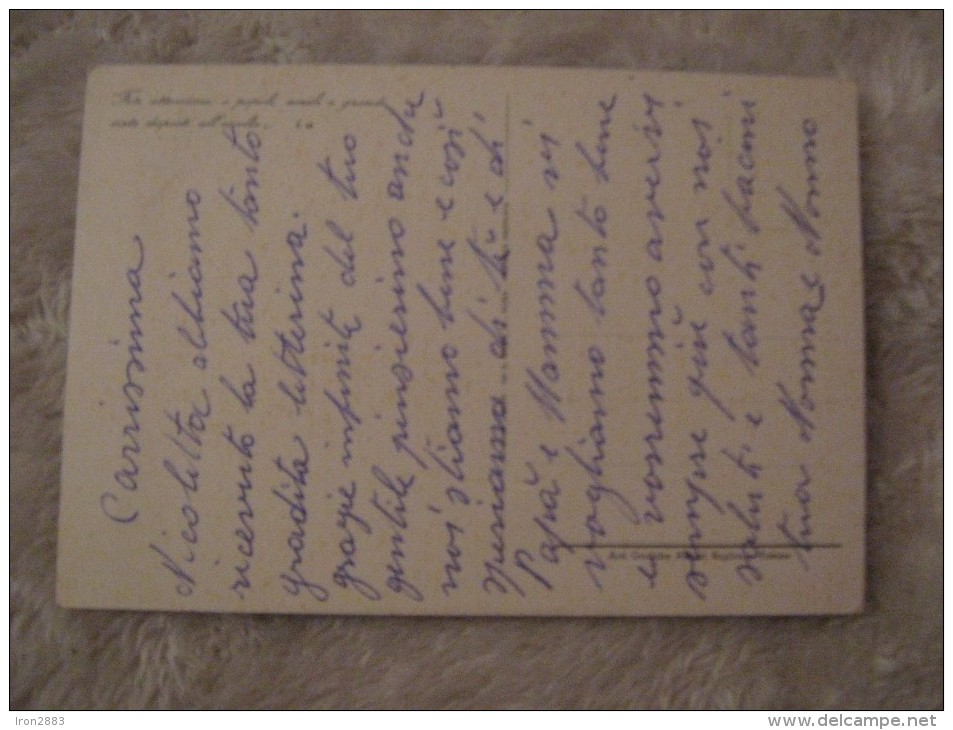 Carissima
Nicoletta abbiamo
ricevuto la tua tanto
gradita letterina.
grazie infinite del tuo
gentile pensierino anche
noi stiamo bene e così
speriamo di te e di
Papà e Mamma vi
vogliamo tanto bene
e vorremmo avervi
sempre qui con noi
saluti e tanti bacini
tua Nonna e Nonno
Iron2883
www.delcampe.net